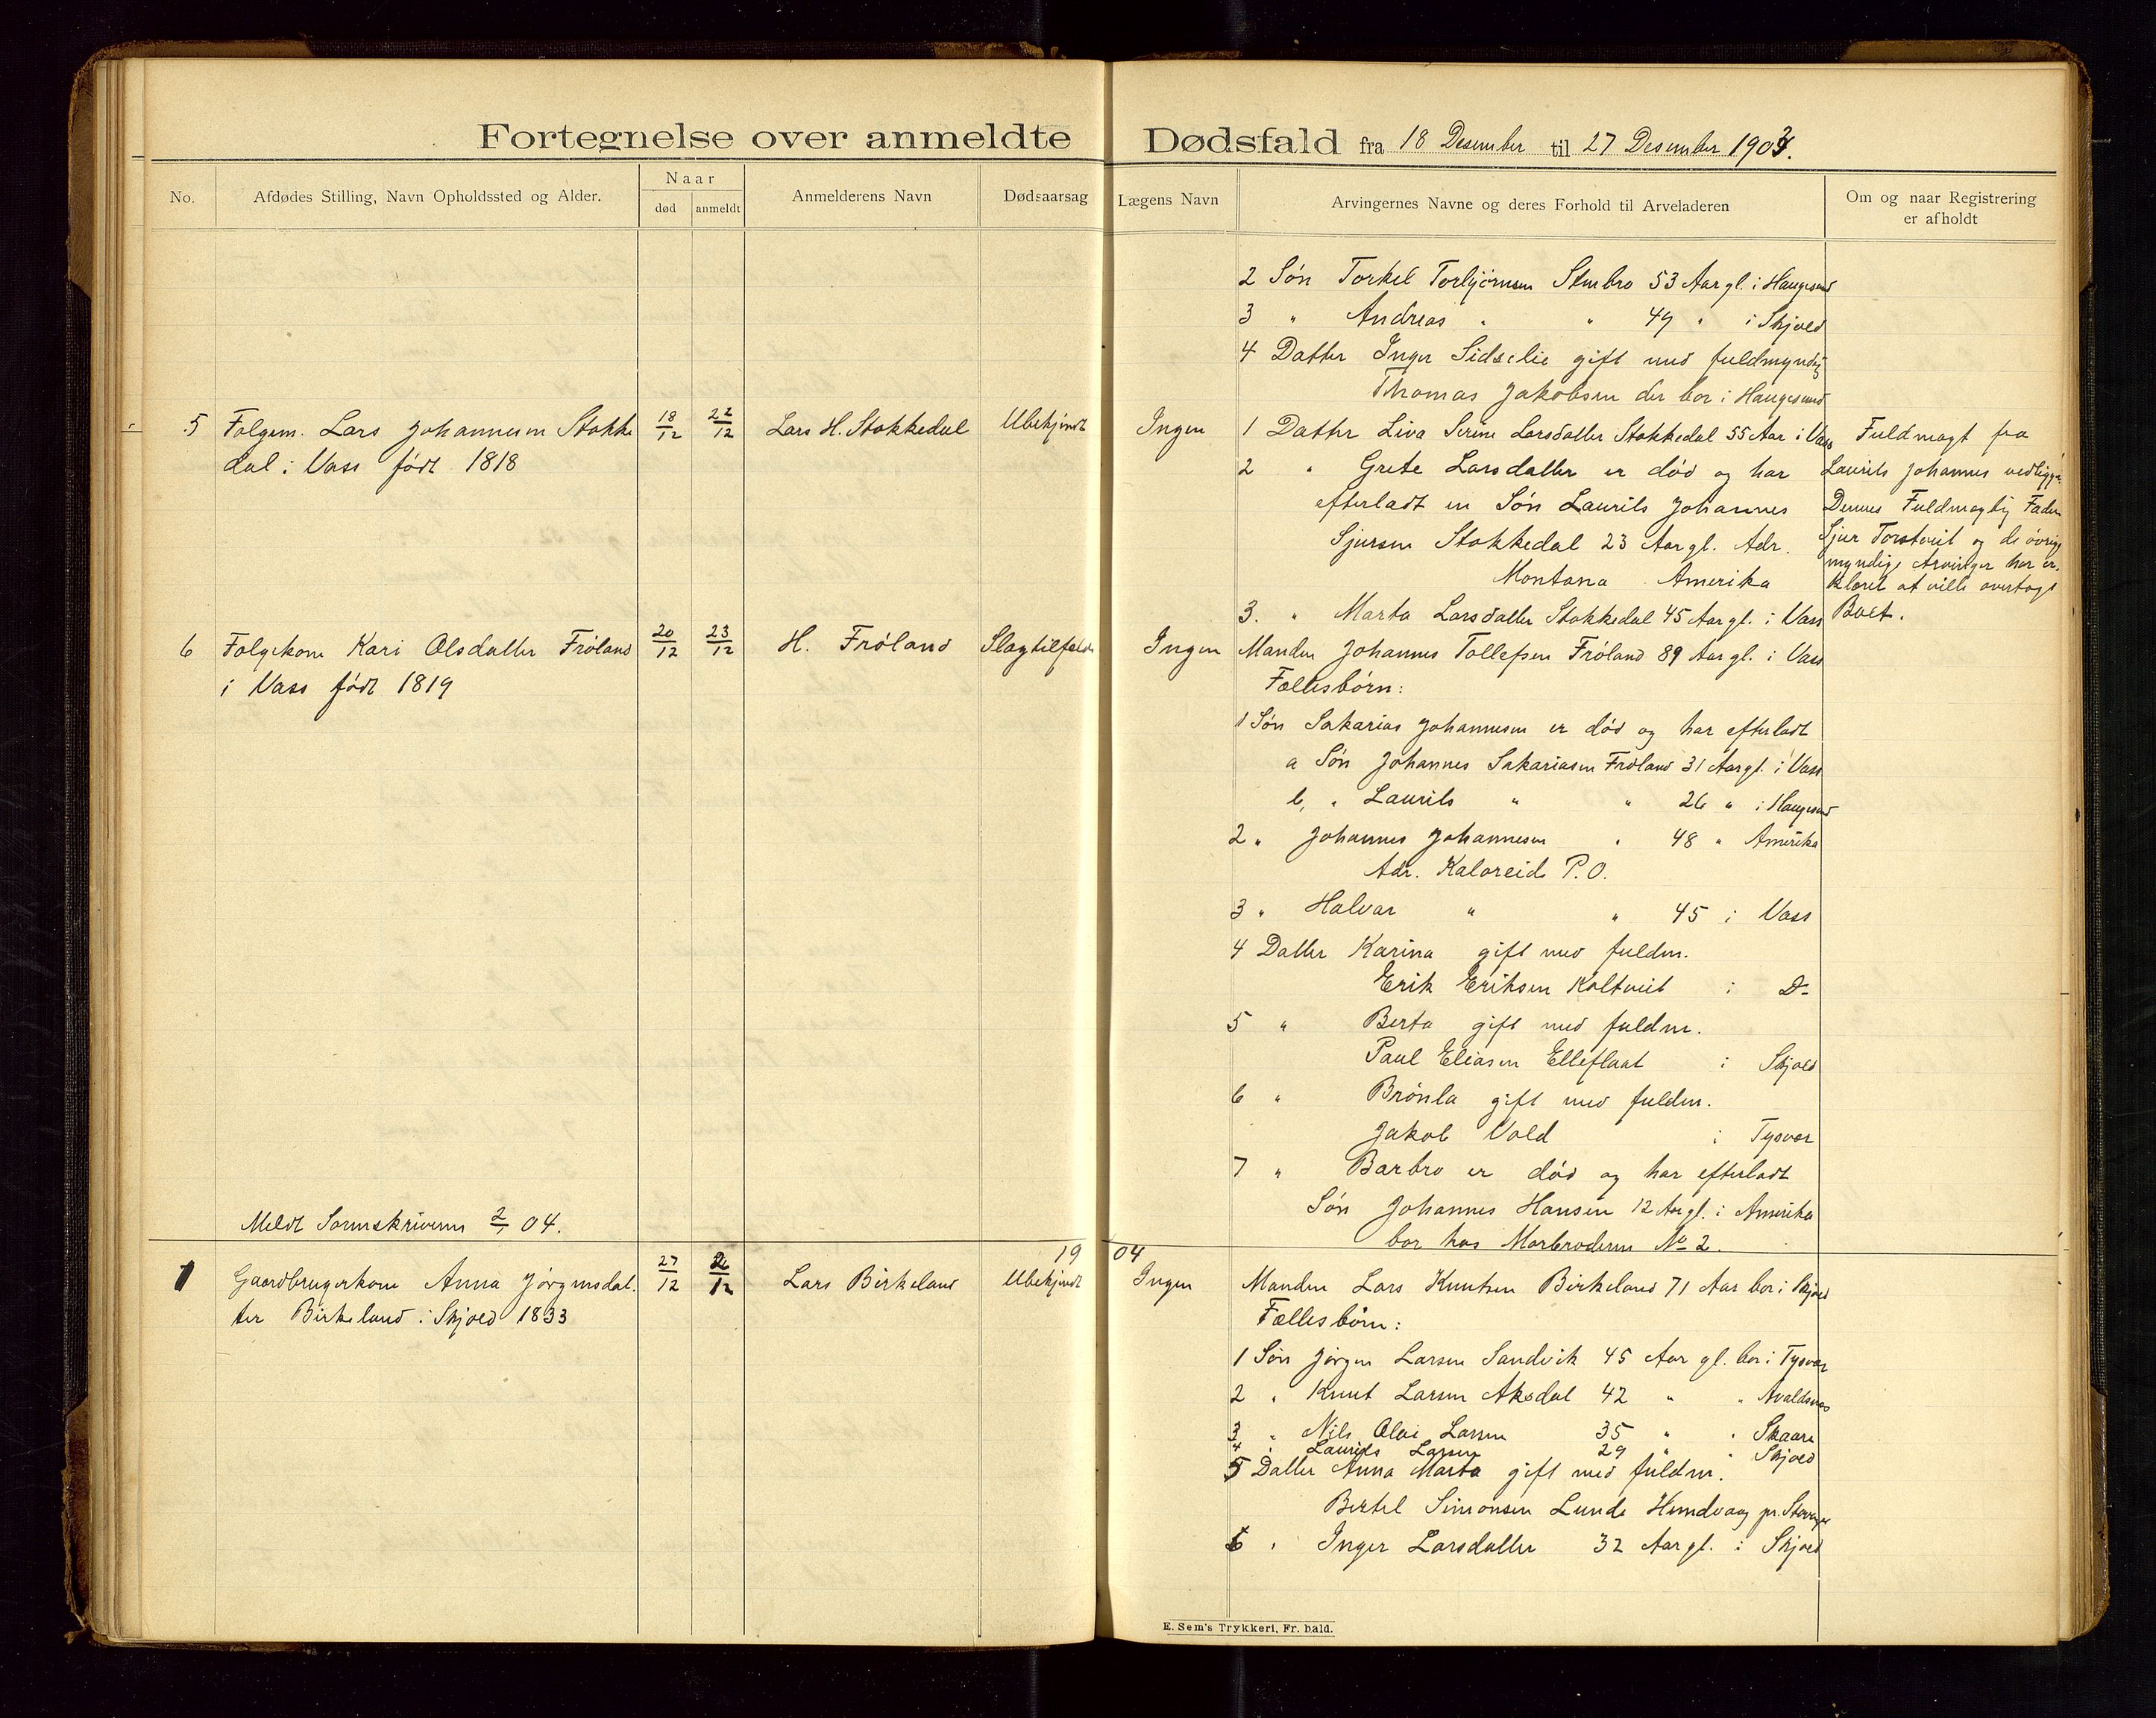 Fortegnelse over anmeldte Dødsfald fra 18 Desember til 27 Desember 1903.
No.
Afdødes Stilling, Navn Opholdssted og Alder.
Naar
død
anmeldt
Anmelderens Navn
Dødsaarsag
Lægens Navn
Arvingernes Navne og deres Forhold til Arveladeren
Om og naar Registrering
er afholdt
2 Søn Torkel Torbjørnsen Stenbro 53 Aar gl. i Haugesund
3 " Andreas " " 49 " i Skjold
4 Datter Inger Sidselie gift med fuldmyndig
Thomas Jakobsen der bor i Haugesund
5 Folgem. Lars Johannesen Stokke
dal i Vass født 1818
18/12
22/12
Lars H. Stokkedal
Ubekjendt
Ingen
1 Datter Liva Serine Larsdatter Stokkedal 55 Aar i Vass
2 " Grete Larsdatter er død og har
efterladt en Søn Laurits Johannes
Sjursen Stokkedal 23 Aar gl. Adr.
Montana Amerika
3. " Marta Larsdatter Stokkedal 45 Aar gl. i Vass
Fuldmagt fra
Laurits Johannes vedligger
Dennes Fuldmægtig Faderen
Sjur Torstveit og de øvrige
myndige Arvinger har er-
klæret at ville overtage
Boet.
6 Folgekone Kari Olsdatter Frøland
i Vass født 1819
20/12
23/12
H. Frøland
Slagtilfælde
Ingen
Manden Johannes Tollefsen Frøland 89 Aar gl. i Vass
Fællesbørn:
1 Søn Sakarias Johannesen er død og har efterladt
a Søn Johannes Sakariasen Frøland 31 Aar gl. i Vass
b, " Laurits " " 26 " i Haugesund
2 " Johannes Johannesen " 48 " Amerika
Adr. Kaloreids P.O.
3 " Halvar " " 45 i Vass
4 Datter Karina gift med fuldm.
Erik Eriksen Koltveit i Do
5 " Berta gift med fuldm.
Paul Eliasen Elleflaat i Skjold
6 " Brønla gift med fuldm.
Jakob Vold i Tysvær
7 " Barbro er død og har efterladt
Søn Johannes Hansen 12 Aar gl. i Amerika
bor hos Morbroderen No 2.
Meldt Sorenskriveren 2/1 04.
1904
1 Gaardbrugerkone Anna Jørgensdat-
ter Birkeland i Skjold 1833
27/12
2/12
Lars Birkeland
Ubekjendt
Ingen
Manden Lars Knutsen Birkeland 71 Aar bor i Skjold
Fællesbørn:
1 Søn Jørgen Larsen Sandvik 45 Aar gl. bor i Tysvær
2 " Knut Larsen Aksdal 42 " " Avaldsnes
3 " Nils Olai Larsen 35 " " Skaare
4 " Laurits Larsen 29 " " Skjold
5 Datter Anna Marta gift med fuldm.
Bertel Simonsen Lunde Hundvaag pr. Stavanger
6 " Inger Larsdatter 32 Aar gl. i Skjold
E. Sem's Trykkeri, Fr. hald.